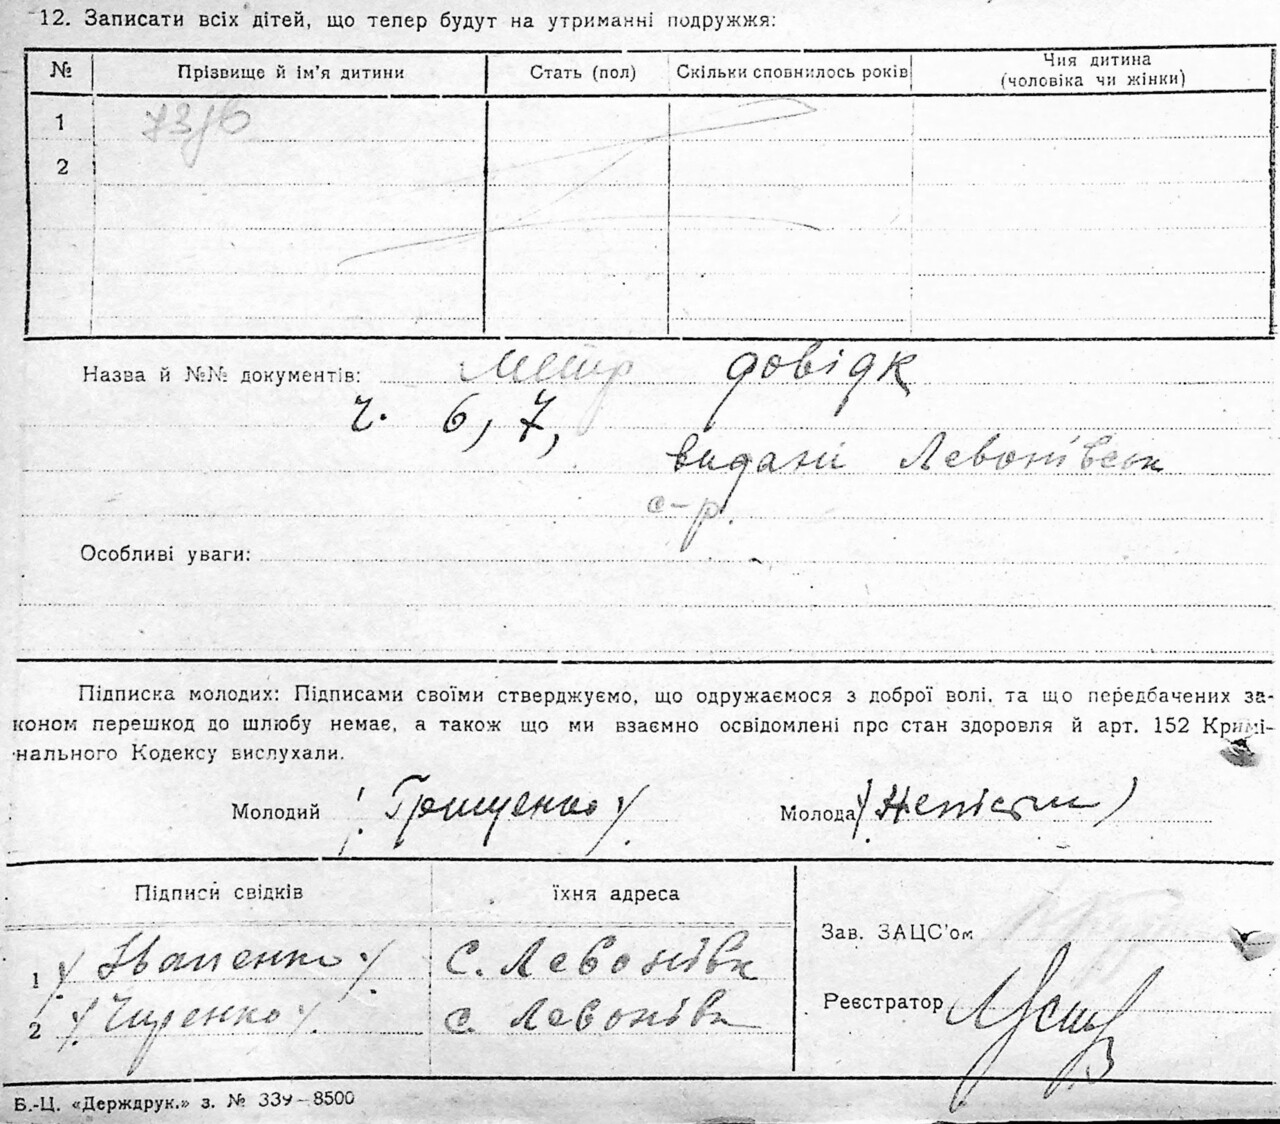 12. Записати всіх дітей, що тепер будут на утриманні подружжя:
№ Прізвище й ім'я дитини Стать (пол) Скільки сповнилось років Чия дитина (чоловіка чи жінки)
1
2
Назва й №№ документів: Метр довідк
ч. 6, 7,
видані Левонівськ
с-р.
Особливі уваги:
Підписка молодих: Підписами своїми стверджуємо, що одружаємося з доброї волі, та що передбачених за-
коном перешкод до шлюбу немає, а також що ми взаємно освідомлені про стан здоровля й арт. 152 Кримі-
нального Кодексу вислухали.
Молодий / Грищенко / Молода
Підписи свідків їхня адреса
Зав. ЗАЦС'ом
1 / Іваненко / с. Левонівк
Реєстратор
2 с. Левонівк
Б.-Ц. «Держдрук.» з. № 339—8500